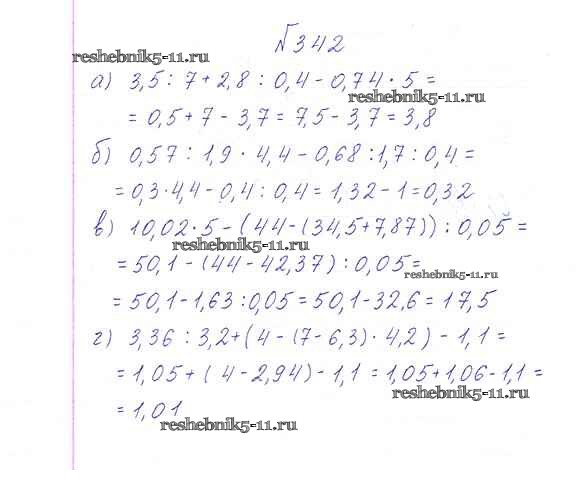 №342
reshebnik5-11.ru
а) 3,5 : 7 + 2,8 : 0,4 - 0,74 · 5 =
reshebnik5-11.ru
= 0,5 + 7 - 3,7 = 7,5 - 3,7 = 3,8
б) 0,57 : 1,9 · 4,4 - 0,68 : 1,7 : 0,4 =
= 0,3 · 4,4 - 0,4 : 0,4 = 1,32 - 1 = 0,32
в) 10,02 · 5 - (44 - (34,5 + 7,87)) : 0,05 =
reshebnik5-11.ru
= 50,1 - (44 - 42,37) : 0,05 =
reshebnik5-11.ru
= 50,1 - 1,63 : 0,05 = 50,1 - 32,6 = 17,5
г) 3,36 : 3,2 + (4 - (7 - 6,3) · 4,2) - 1,1 =
= 1,05 + (4 - 2,94) - 1,1 = 1,05 + 1,06 - 1,1 =
reshebnik5-11.ru
= 1,01
reshebnik5-11.ru